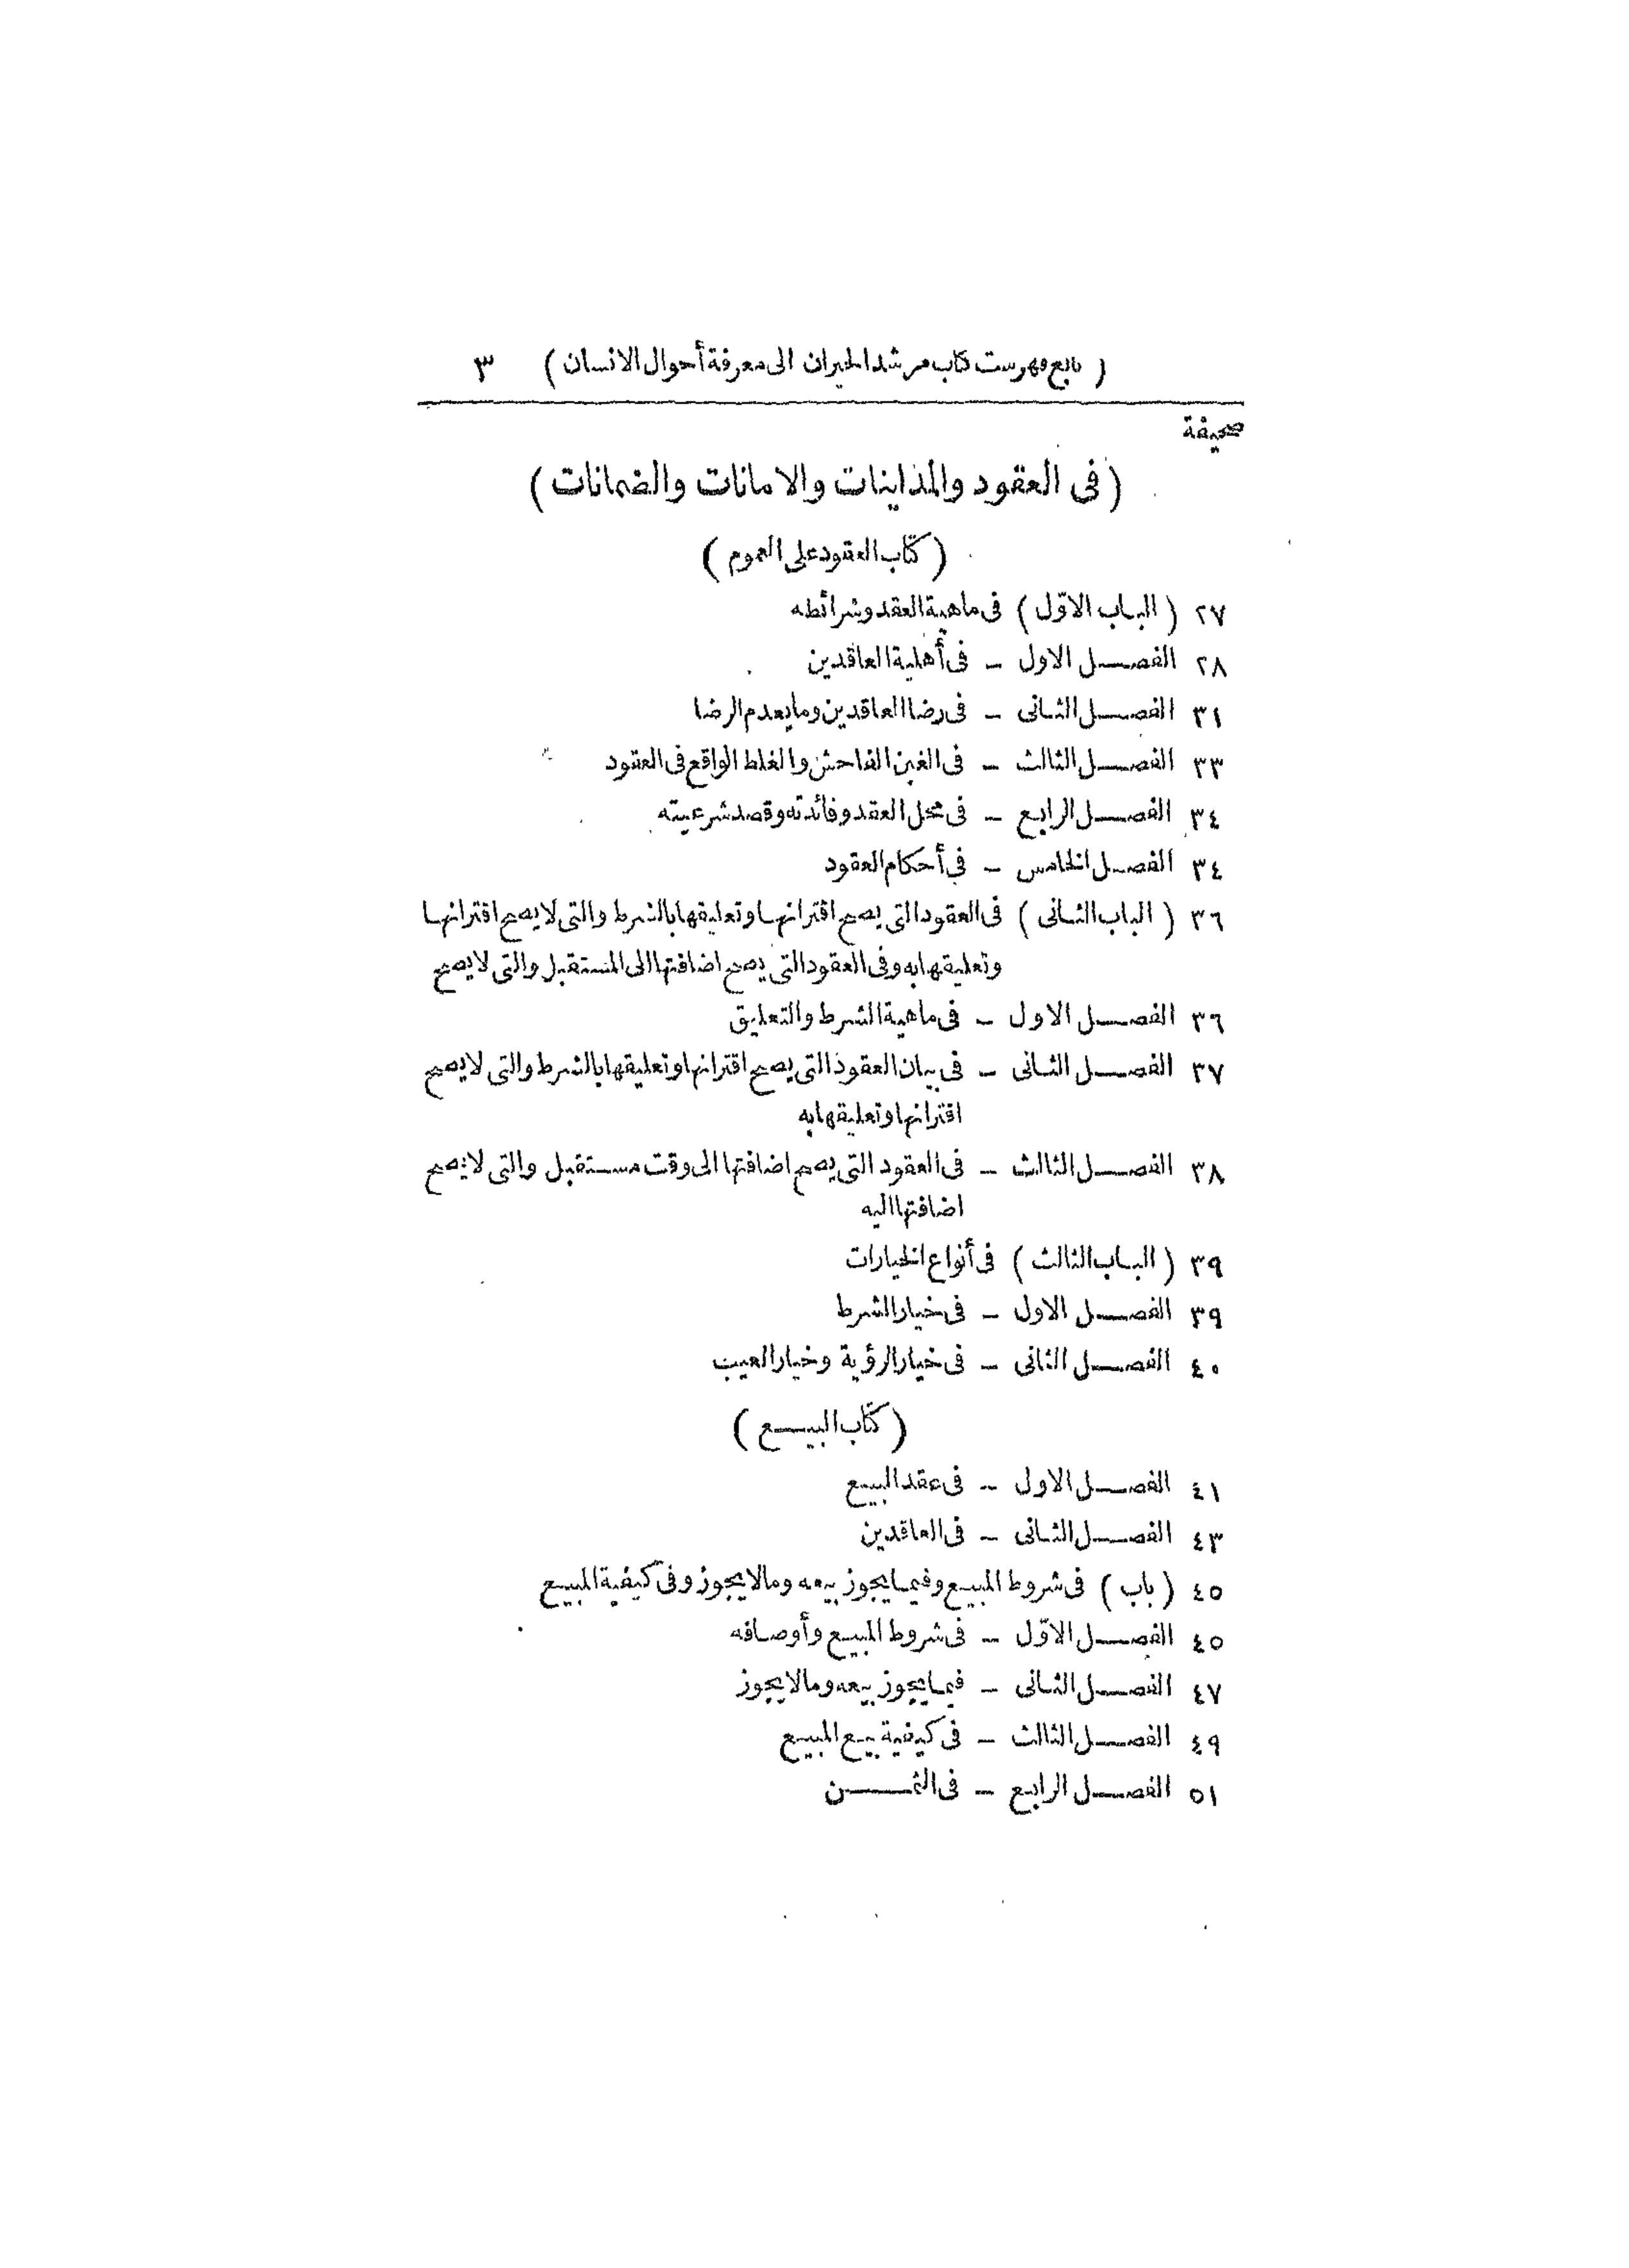 ( تابع فهرست كتاب مرشد الحيران الى معرفة أحوال الانسان ) ٣
صحيفة
( فى العقود والمداينات والامانات والضمانات )
( كتاب العقود على العموم )
٢٧ ( الباب الاوّل ) فى ماهية العقد وشرائطه
٢٨ الفصل الاول – فى أهلية العاقدين
٣١ الفصل الثانى – فى رضا العاقدين وما يعدم الرضا
٣٣ الفصل الثالث – فى الغبن الفاحش والغلط الواقع فى العقود
٣٤ الفصل الرابع – فى محل العقد وفائدته وقصد شرعيته
٣٤ الفصل الخامس – فى أحكام العقود
٣٦ ( الباب الثانى ) فى العقود التى يصح اقترانها وتعليقها بالشرط والتى لا يصح اقترانها
وتعليقها به وفى العقود التى يصح اضافتها الى المستقبل والتى لا يصح
٣٦ الفصل الاول – فى ماهية الشرط والتعليق
٣٧ الفصل الثانى – فى بيان العقود التى يصح اقترانها وتعليقها بالشرط والتى لا يصح
اقترانها وتعليقها به
٣٨ الفصل الثالث – فى العقود التى يصح اضافتها الى وقت مستقبل والتى لا يصح
اضافتها اليه
٣٩ ( الباب الثالث ) فى أنواع الخيارات
٣٩ الفصل الاول – فى خيار الشرط
٤٠ الفصل الثانى – فى خيار الرؤية وخيار العيب
( كتاب البيع )
٤١ الفصل الاول – فى عقد البيع
٤٣ الفصل الثانى – فى العاقدين
٤٥ ( باب ) فى شروط المبيع وفيما يجوز بيعه وما لا يجوز وفى كيفية المبيع
٤٥ الفصل الاوّل – فى شروط المبيع وأوصافه
٤٧ الفصل الثانى – فيما يجوز بيعه وما لا يجوز
٤٩ الفصل الثالث – فى كيفية بيع المبيع
٥١ الفصل الرابع – فى الثمن